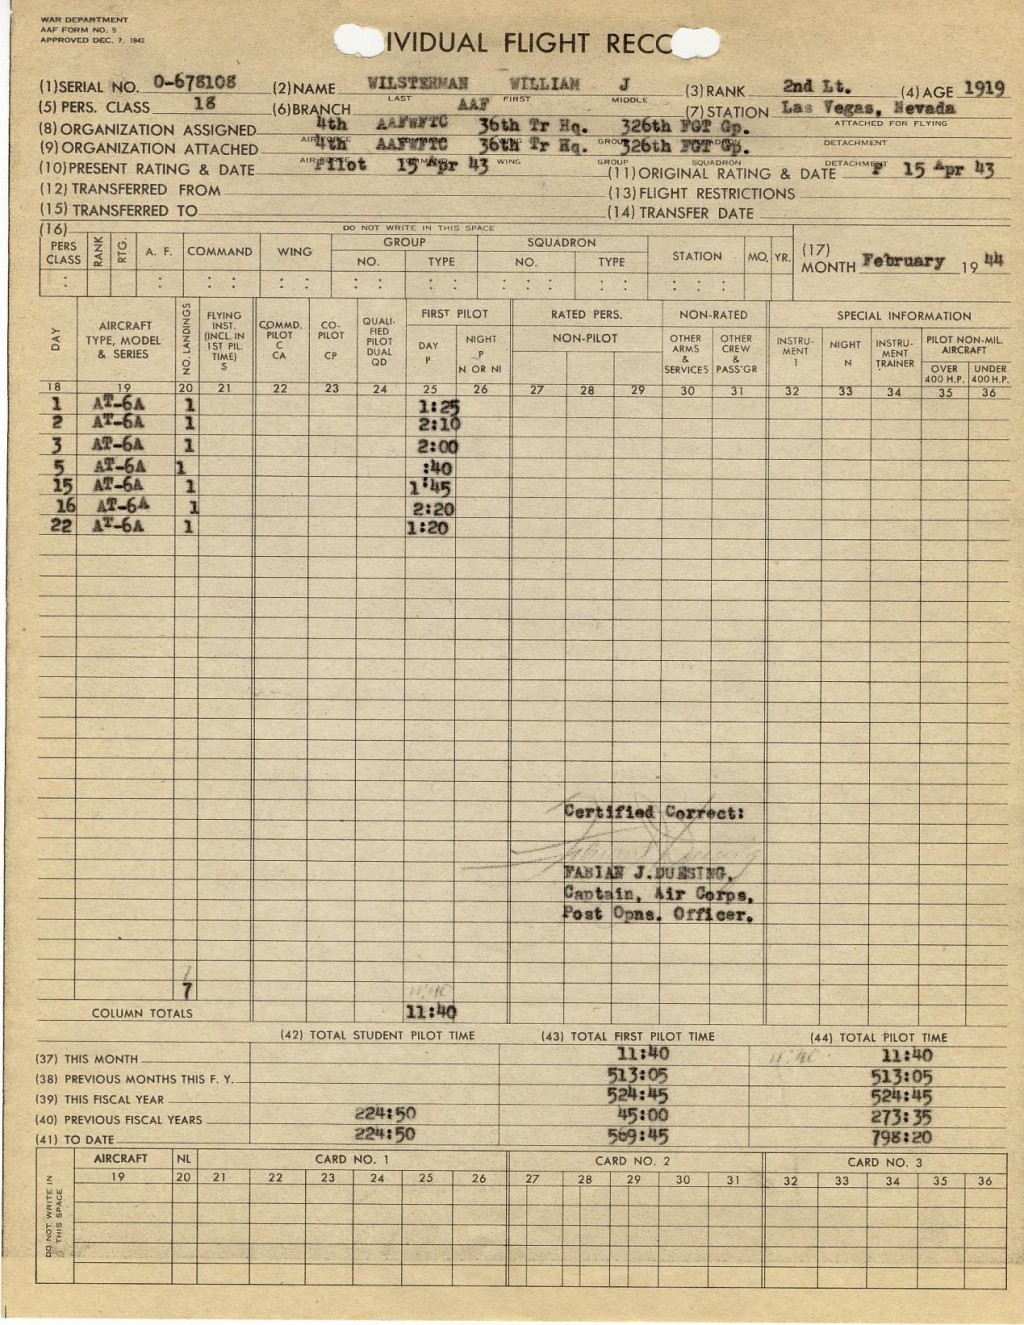 WAR DEPARTMENT
AAF FORM NO. 5
APPROVED DEC. 7, 1942
IVIDUAL FLIGHT RECO
(1) SERIAL NO. O-678108 (2) NAME WILSTERMAN WILLIAM J (3) RANK 2nd Lt. (4) AGE 1919
LAST FIRST MIDDLE
(5) PERS. CLASS 18 (6) BRANCH AAF (7) STATION Las Vegas, Nevada
(8) ORGANIZATION ASSIGNED 4th AAFWFTC 36th Tr Hq. 326th FGT Gp. ATTACHED FOR FLYING
(9) ORGANIZATION ATTACHED 4th AAFWFTC 36th Tr Hq. 326th FGT Gp. DETACHMENT
(10) PRESENT RATING & DATE Pilot 15 Apr 43 WING GROUP SQUADRON DETACHMENT
(11) ORIGINAL RATING & DATE P 15 Apr 43
(12) TRANSFERRED FROM (13) FLIGHT RESTRICTIONS
(15) TRANSFERRED TO (14) TRANSFER DATE
(16) DO NOT WRITE IN THIS SPACE
PERS CLASS RANK RTG. A. F. COMMAND WING GROUP SQUADRON STATION MO. YR.
NO. TYPE NO. TYPE
(17) MONTH February 19 44
DAY AIRCRAFT TYPE, MODEL & SERIES NO. LANDINGS FLYING INST. (INCL. IN 1ST PIL. TIME) S COMMD. PILOT C CA CO-PILOT CP QUALI-FIED PILOT DUAL QD FIRST PILOT DAY P NIGHT P N OR NI RATED PERS. NON-PILOT NON-RATED OTHER ARMS & SERVICES OTHER CREW & PASS'GR SPECIAL INFORMATION INSTRU-MENT I NIGHT N INSTRU-MENT TRAINER PILOT NON-MIL. AIRCRAFT OVER 400 H.P. UNDER 400 H.P.
18 19 20 21 22 23 24 25 26 27 28 29 30 31 32 33 34 35 36
1 AT-6A 1 1:25
2 AT-6A 1 2:10
3 AT-6A 1 2:00
5 AT-6A 1 :40
15 AT-6A 1 1:45
16 AT-6A 1 2:20
22 AT-6A 1 1:20
Certified Correct:
FABIAN J. DUESING,
Captain, Air Corps,
Post Opns. Officer.
7
7 11:40
COLUMN TOTALS 11:40
(42) TOTAL STUDENT PILOT TIME (43) TOTAL FIRST PILOT TIME (44) TOTAL PILOT TIME
(37) THIS MONTH 11:40 11:40 11:40
(38) PREVIOUS MONTHS THIS F. Y. 513:05 513:05
(39) THIS FISCAL YEAR 524:45 524:45
(40) PREVIOUS FISCAL YEARS 224:50 45:00 273:35
(41) TO DATE 224:50 569:45 798:20
DO NOT WRITE IN THIS SPACE
AIRCRAFT NL CARD NO. 1 CARD NO. 2 CARD NO. 3
19 20 21 22 23 24 25 26 27 28 29 30 31 32 33 34 35 36